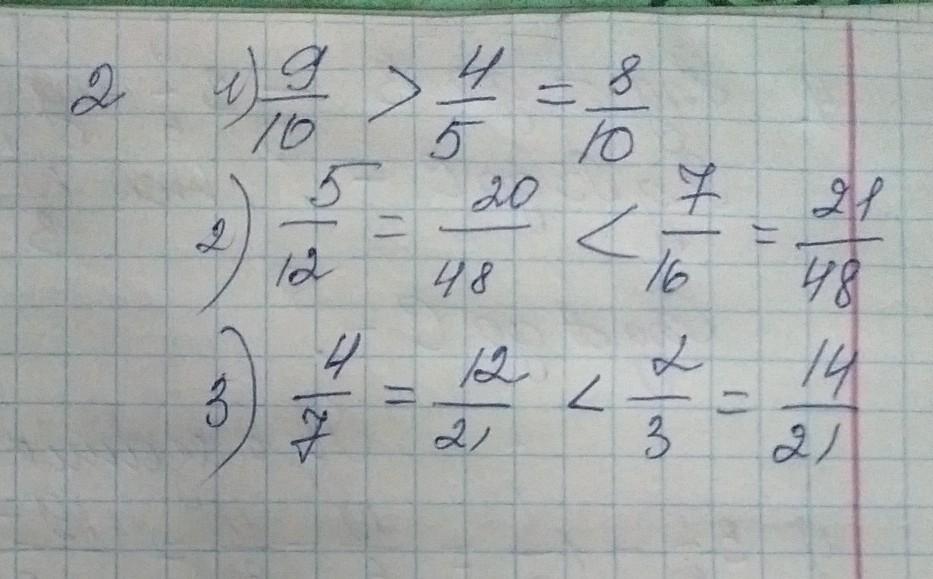 2 1) 9/10 > 4/5 = 8/10
2) 5/12 = 20/48 < 7/16 = 21/48
3) 4/7 = 12/21 < 2/3 = 14/21